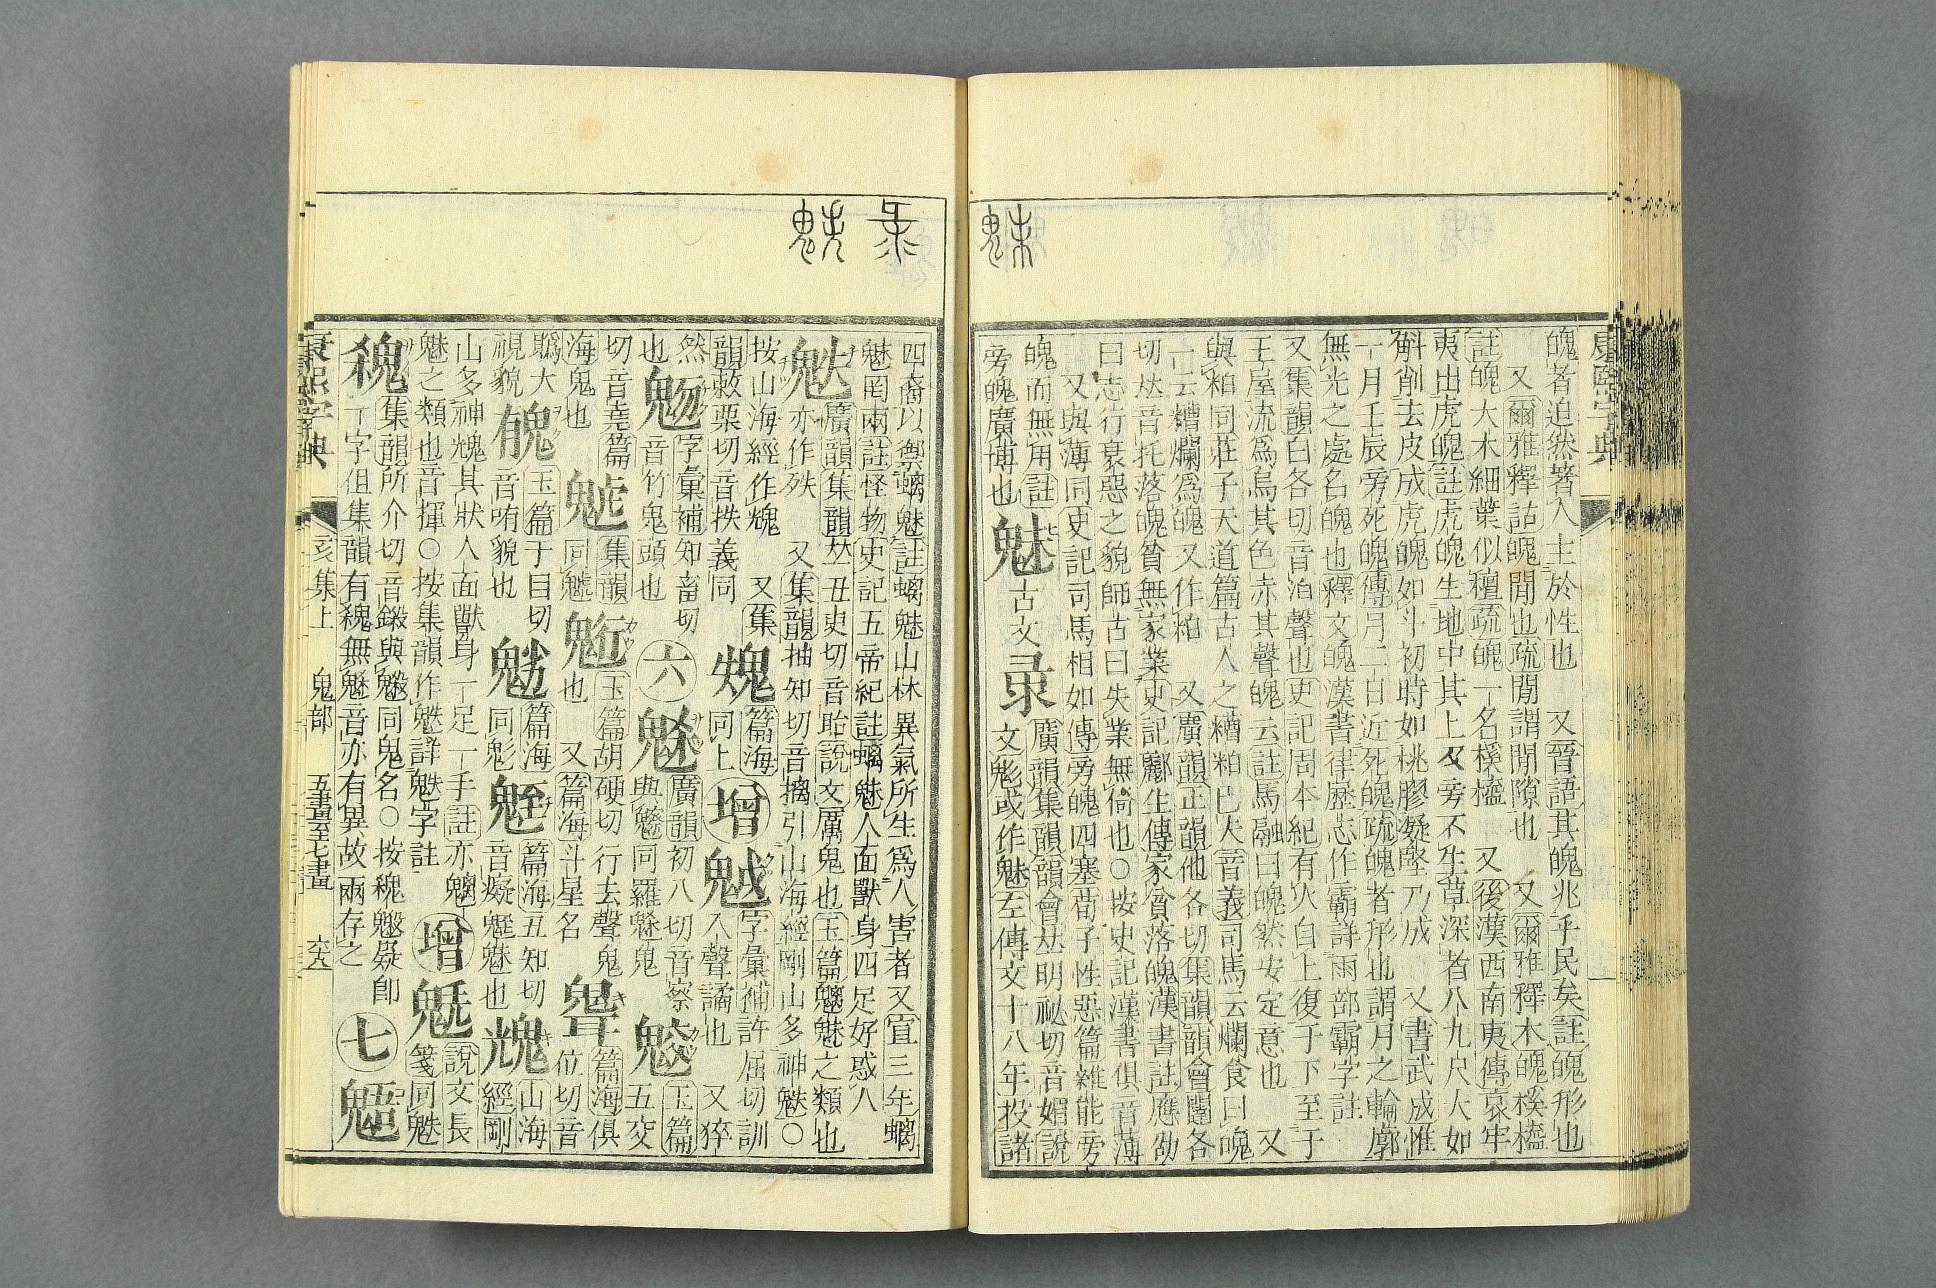 康熙字典
魅
魄者迫然著入主於性也 又晉語其魄兆乎民矣註魄形也
又爾雅釋詁魄閒也疏閒謂閒隙也 又爾雅釋木魄榽橀
註魄大木細葉似檀疏魄一名榽橀 又後漢西南夷傳哀牢
夷出虎魄註虎魄生地中其上及旁不生草深者八九尺大如
斛削去皮成虎魄如斗初時如桃膠凝堅乃成 又書武成惟
一月壬辰旁死魄傳月二日近死魄疏魄者形也謂月之輪廓
無光之處名魄也釋文魄漢書律歷志作霸詳雨部霸字註
又集韻白各切音泊聲也史記周本紀有火自上復于下至于
王屋流爲烏其色赤其聲魄云註馬融曰魄然安定意也 又
與粕同莊子天道篇古人之糟粕已夫音義司馬云爛食曰魄
一云糟爛爲魄又作粕 又廣韻正韻他各切集韻韻會闥各
切𠀤音托落魄貧無家業史記酈生傳家貧落魄漢書註應劭
曰志行衰惡之貌師古曰失業無倚也○按史記漢書俱音薄
又與薄同史記司馬相如傳旁魄四塞荀子性惡篇雜能旁
魄而無用註
旁魄廣博也
魅
古文
彔
廣韻集韻韻會𠀤明祕切音媚說
文鬽或作魅左傳文十八年投諸
四裔以禦螭魅註螭魅山林異氣所生爲人害者又宣三年螭
魅罔兩註怪物史記五帝紀註螭魅人面獸身四足好惑人
魅
廣韻集韻𠀤丑吏切音眙說文厲鬼也玉篇魑魅之類也
亦作殀 又集韻抽知切音摛引山海經剛山多神䰡○
按山海經作䰠 又集
韻敕栗切音抶義同
篇海
同上
增
䬂
字彙補許屈切訓
入聲譎也 又猝
然
也
字彙補知畜切
音竹鬼頭也
六
廣韻初八切音察
典 同羅 鬼
玉篇五交
切音堯篇
海鬼也
集韻
同魖
玉篇胡硬切
行去聲鬼
也 又篇海斗星名
篇海俱
位切音
大
視貌
醜
玉篇于目切
音哊貌也
篇海
同鬽
篇海五知切
音癡 魅也
䰠
山海
經剛
山多神䰠其狀人面獸身一足一手註亦魑
魅之類也音揮○按集韻作䰡詳䰡字註
增
說文長
箋同魅
集韻所介切音鎩與 同鬼名○按 疑卽
一字但集韻有 無 音亦有異故兩存之
七
康熙字典
亥集上
鬼部
五畫至七畫